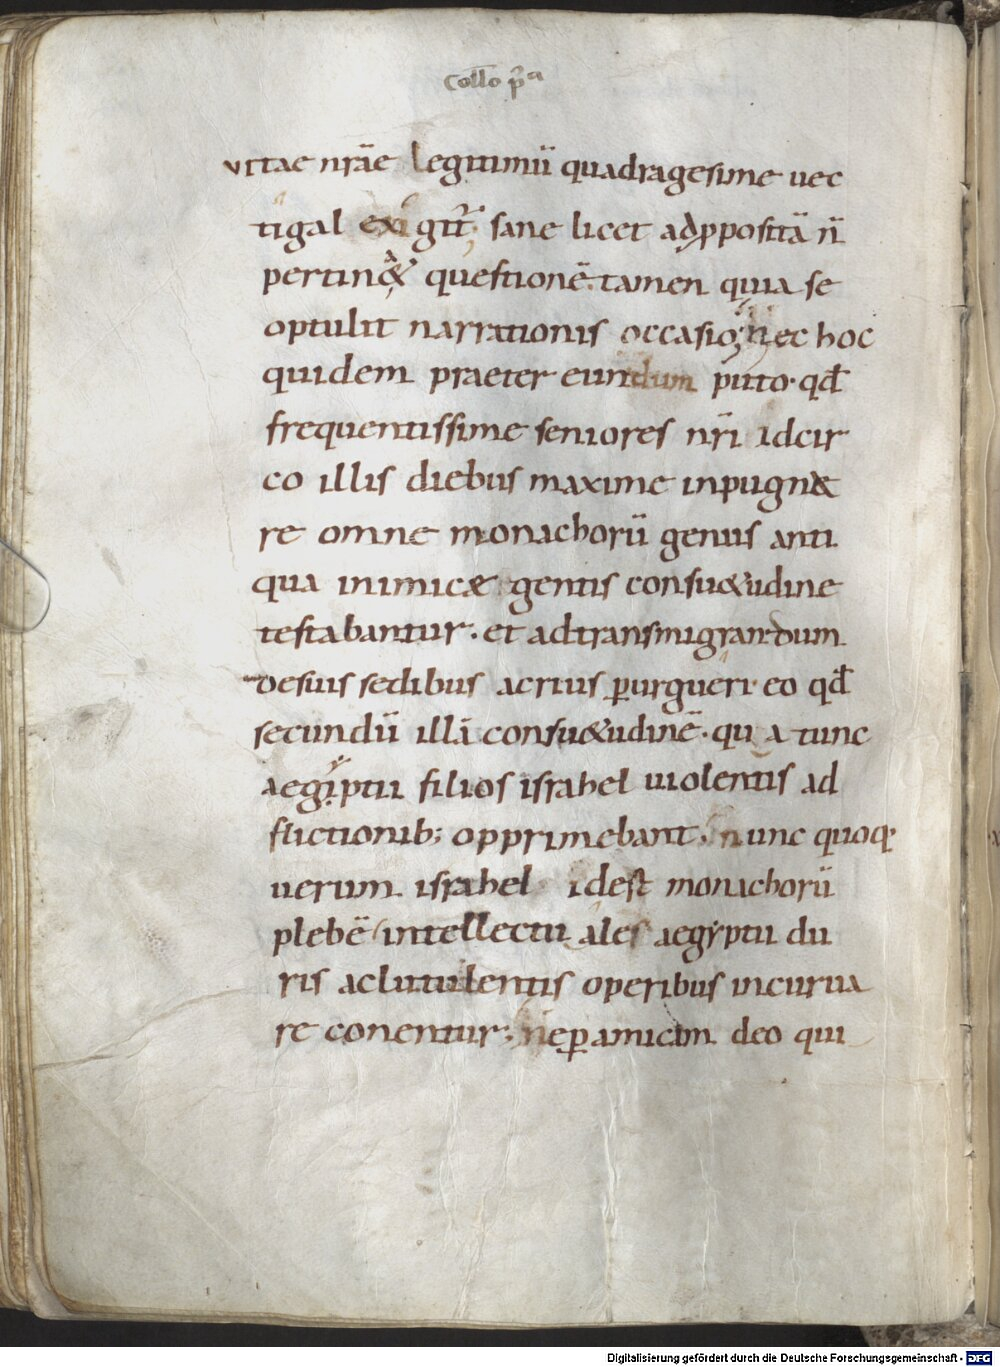 Coll̄o p̄ᵃ
vitae nr̄ae legitimū quadragesime uec
tigal exigit̄; sane licet adppositā n̄
pertin&a questionē. tamen quia se
optulit narrationis occasio; nec hoc
quidem praeter eundum puto. qd̄
frequentissime seniores nr̄i idcir
co illis diebus maxime inpugna
re omne monachorū genus anti
qua inimicae gentis consu&udine
testabantur. et adtransmigrandum
desuis sedibus acrius ꝑurgueri. eo qd̄
secundū illā consu&udinē. qua tunc
aegiptii filios israhel uiolentis ad
flictionib; opprimebant. nunc quoq;
uerum israhel idest monachorū
plebē intellectuales aegẏptii du
ris aclutulentis operibus incurua
re conentur; neꝑ amicam deo qui
Digitalisierung gefördert durch die Deutsche Forschungsgemeinschaft - DFG